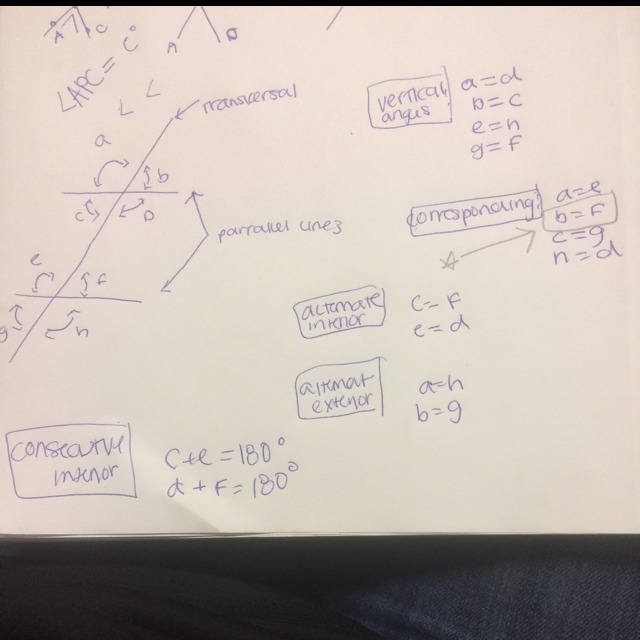 A C
A D
∠APC = C°
∠ ∠
transversal
a
b
c D
parallel lines
e
f
g h
vertical
angus
a=d
b=c
e=h
g=F
corrosponding
a=e
b=F
c=g
h=d
alternate
interior
c=F
e=d
alternat
exterior
a=h
b=g
consecutive
interior
c+e=180°
d+F=180°